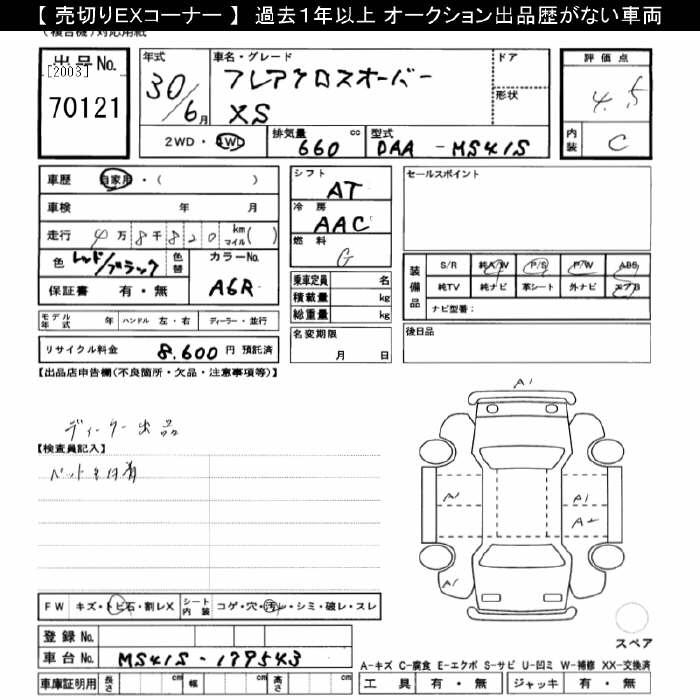 【 売切りEXコーナー 】 過去１年以上 オークション出品歴がない車両
(複合機)対応用紙
出品No.
[2003]
70121
年式
30/6月
車名・グレード
フレアクロスオーバー
XS
ドア
形状
評価点
4.5
内装
C
2WD・4WD
排気量 660 cc
型式 DAA - MS41S
車歴 自家用・( )
車検 年 月
走行 4万8千820 km マイル( )
色 レッド/ブラック 色替
カラーNo. A6R
保証書 有・無
モデル年式 年 ハンドル 左・右 ディーラー・並行
リサイクル料金 8,600 円 預託済
シフト AT
冷房 AAC
燃料 G
乗車定員 名
積載量 kg
総重量 kg
名変期限
月 日
セールスポイント
装備品
S/R 純A/W P/S P/W ABS
純TV 純ナビ 革シート 外ナビ エアB
ナビ型番：
後日品
【出品店申告欄(不良箇所・欠品・注意事項等)】
ディーラー出品
【検査員記入】
A1
A1
A1
A2
A1
スペア
FW キズ・トビ石・割レX
シート内装 コゲ・穴・汚レ・シミ・破レ・スレ
登録No.
車台No. MS41S-179543
車庫証明用 長さ cm 幅 cm 高さ cm
A-キズ C-腐食 E-エクボ S-サビ U-凹ミ W-補修 XX-交換済
工具 有・無 ジャッキ 有・無